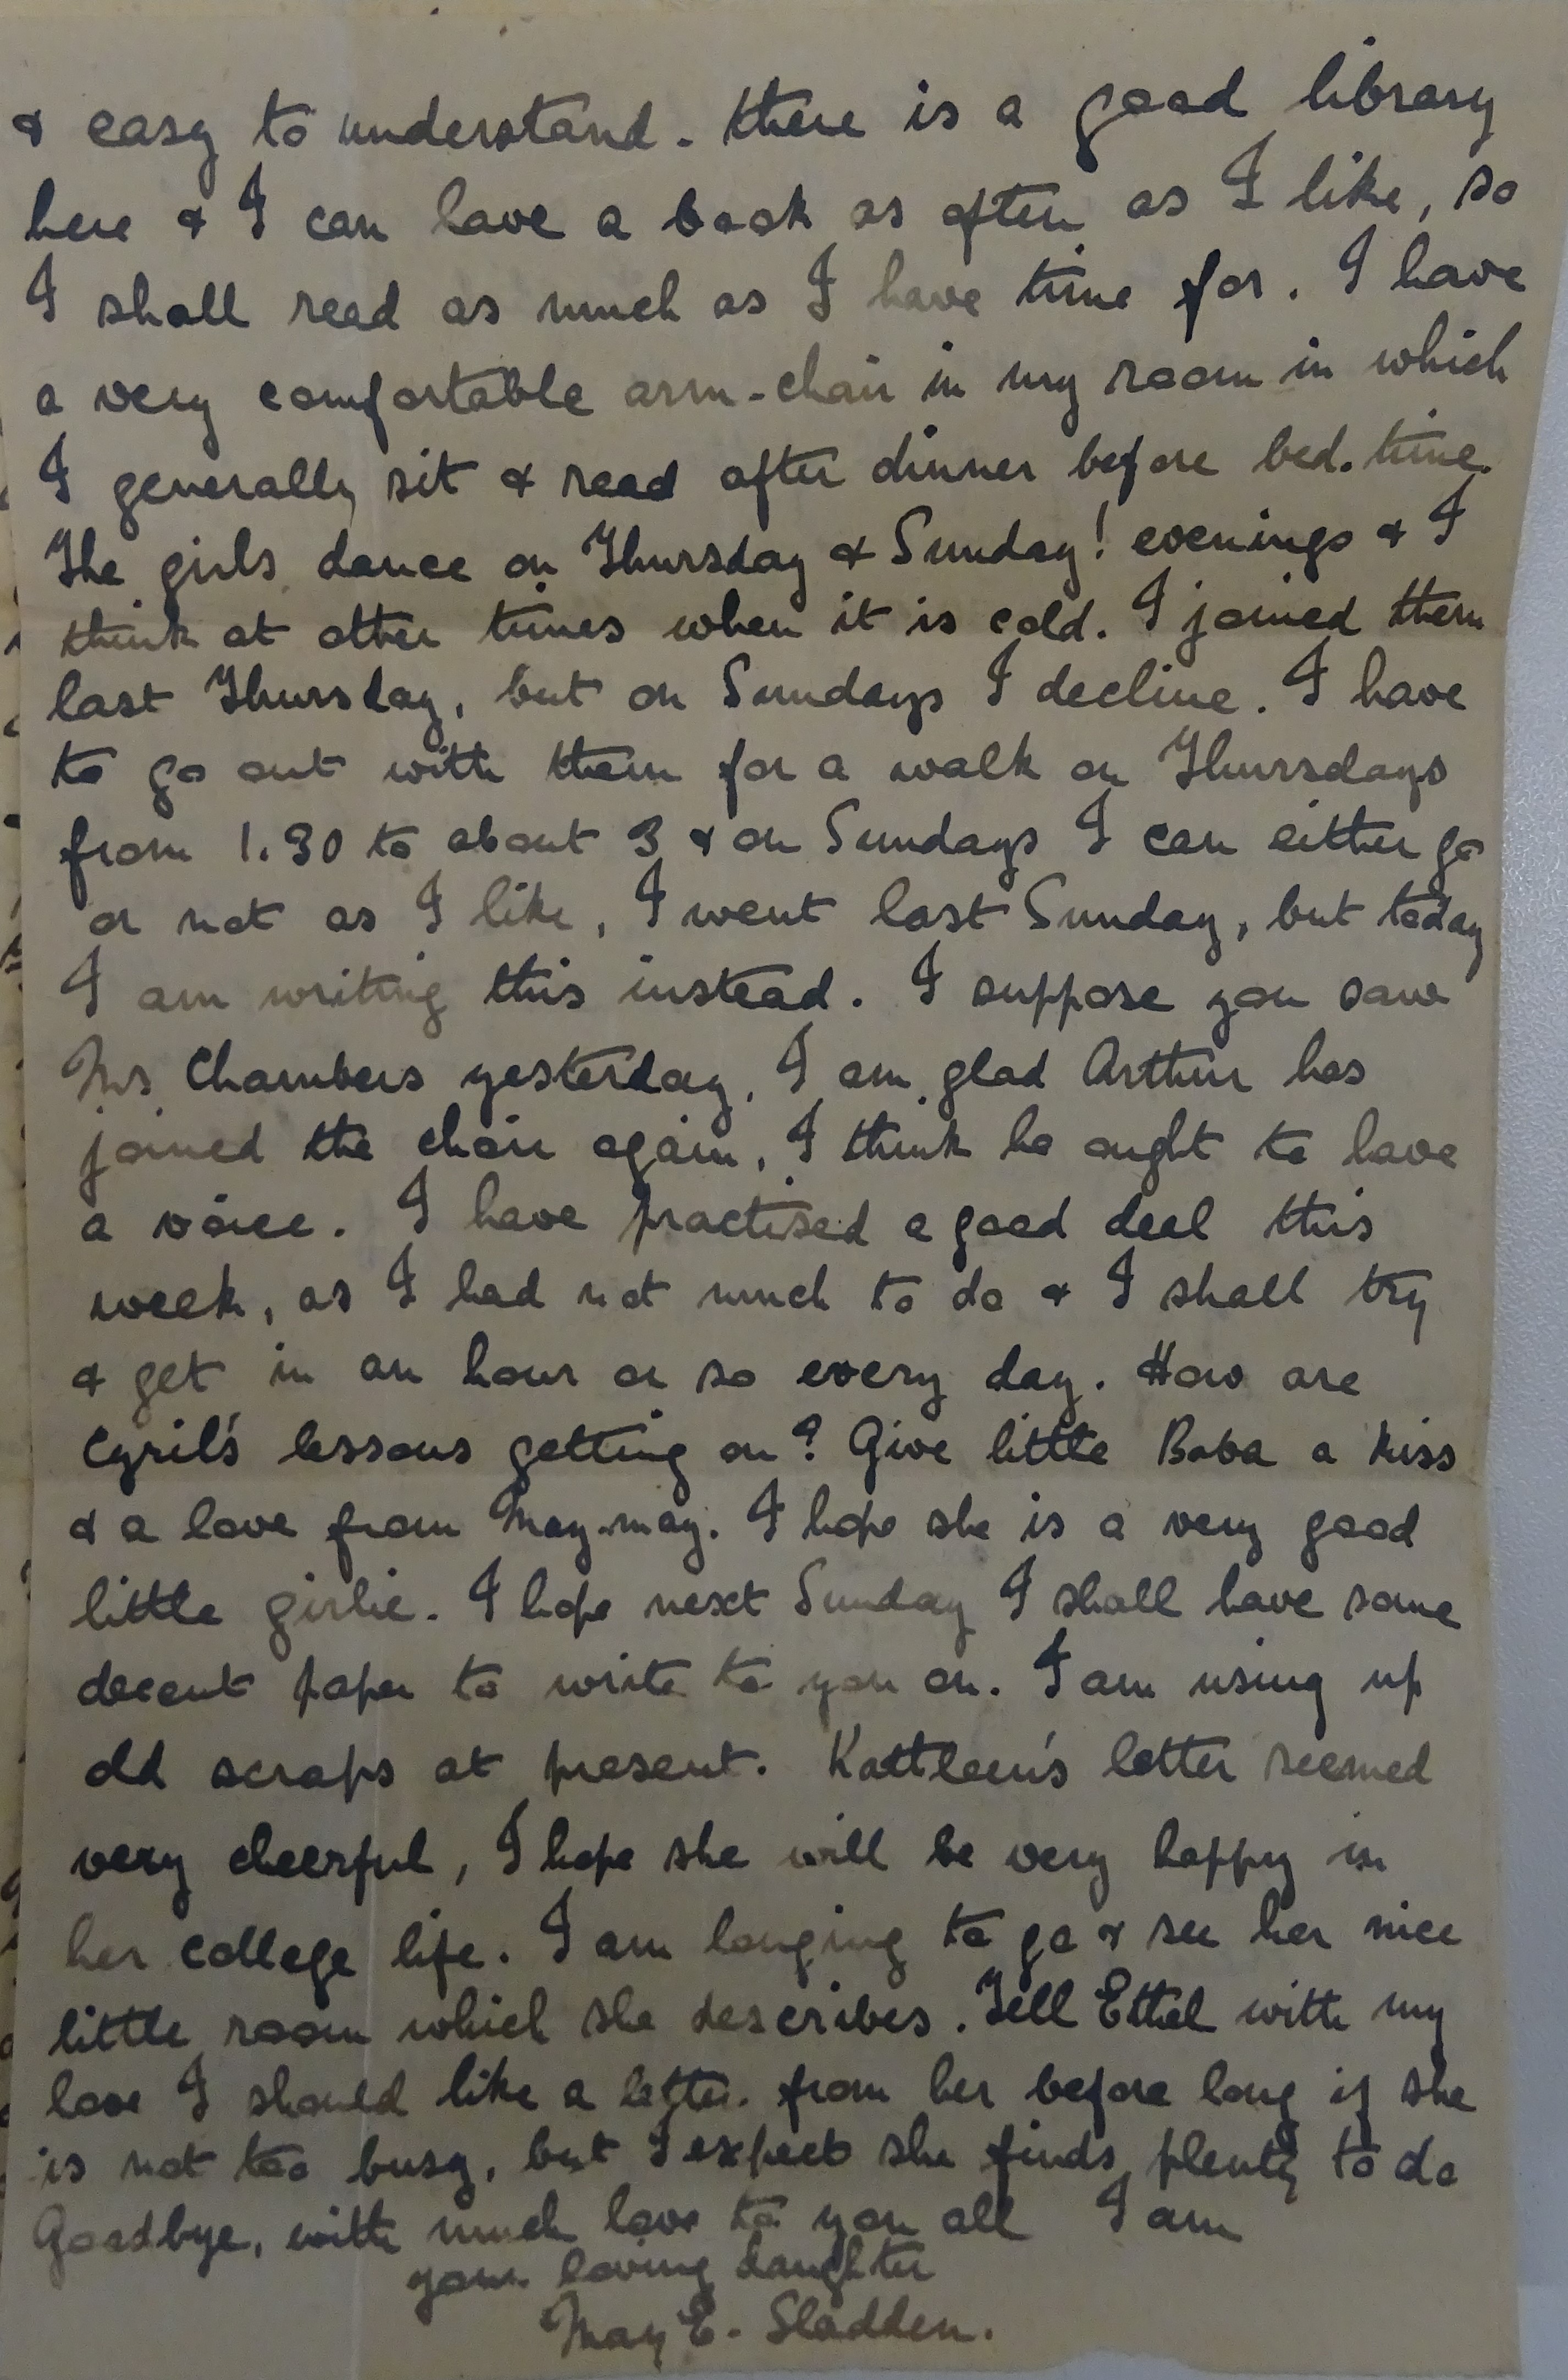 & easy to understand. There is a good library
here & I can have a book as often as I like, so
I shall read as much as I have time for. I have
a very comfortable arm-chair in my room in which
I generally sit & read after dinner before bed-time.
The girls dance on Thursday & Sunday! evenings & I
think at other times when it is cold. I joined them
last Thursday, but on Sundays I decline. I have
to go out with them for a walk on Thursdays
from 1.30 to about 3 & on Sundays I can either go
or not as I like, I went last Sunday, but today
I am writing this instead. I suppose you saw
Mrs Chambers yesterday, I am glad Arthur has
joined the choir again, I think he ought to have
a voice. I have practised a good deal this
week, as I had not much to do & I shall try
& get in an hour or so every day. How are
Cyril's lessons getting on? Give little Baba a kiss
& a love from May-may. I hope she is a very good
little girlie. I hope next Sunday I shall have some
decent paper to write to you on. I am using up
old scraps at present. Kathleen's letter seemed
very cheerful, I hope she will be very happy in
her college life. I am longing to go & see her nice
little room which she describes. Tell Ethel with my
love I should like a letter from her before long if she
is not too busy, but I expect she finds plenty to do
Goodbye, with much love to you all I am
your loving daughter
May E. Sladden.